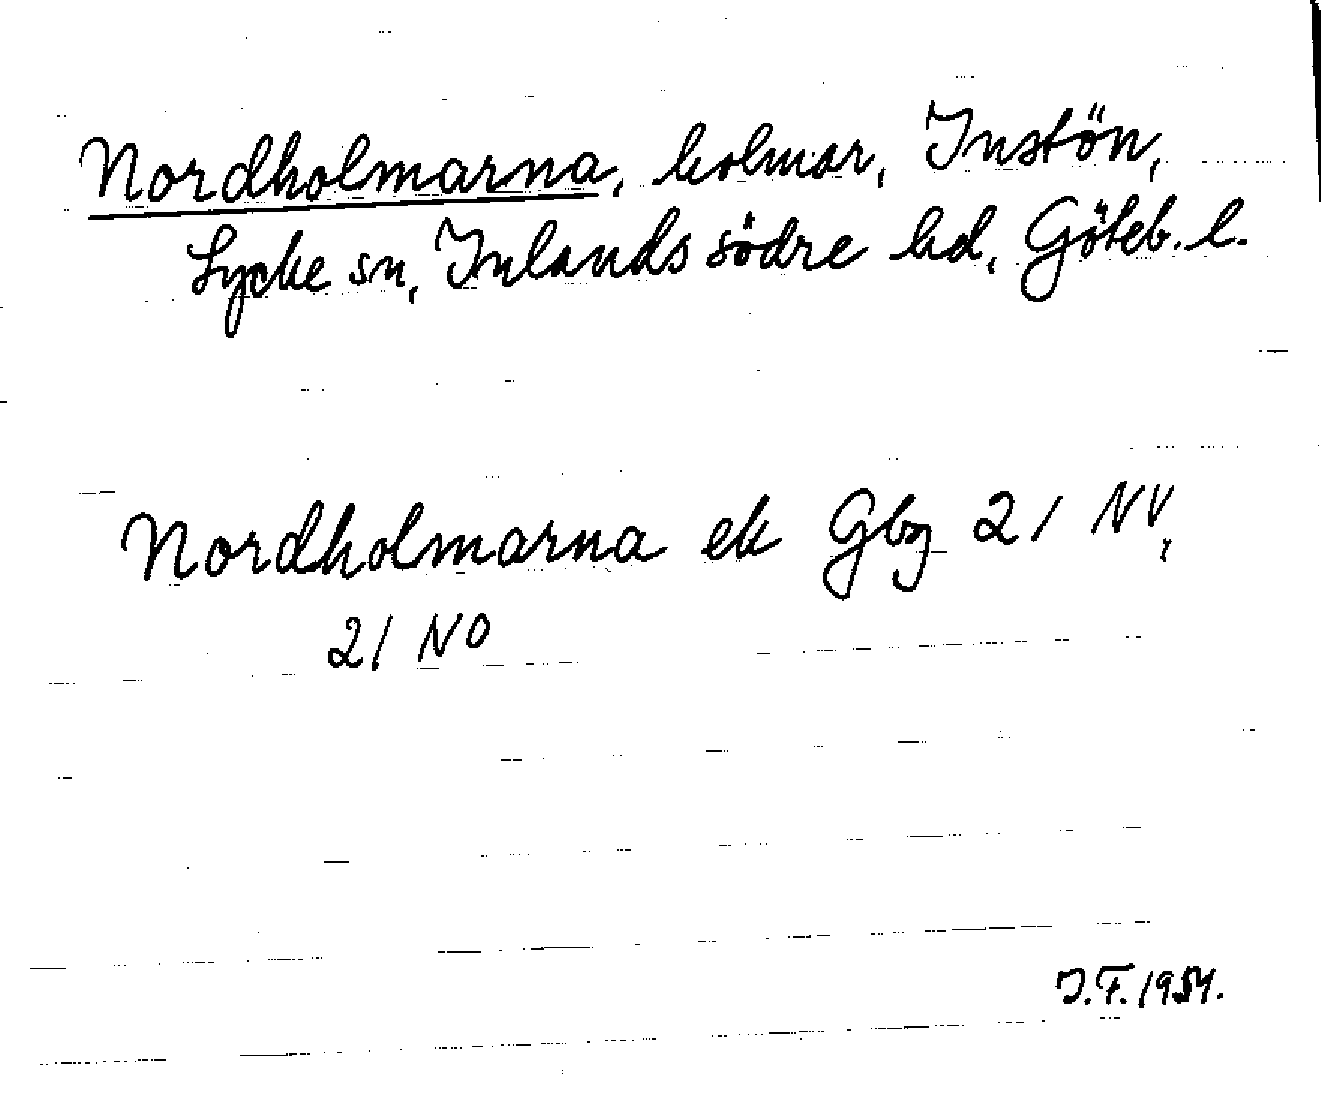 Nordholmarna, holmar, Instön,
Lycke sn, Inlands södre hd, Göteb. l.
Nordholmarna ek Gbg 21 NV,
21 NO
J.F. 1954.